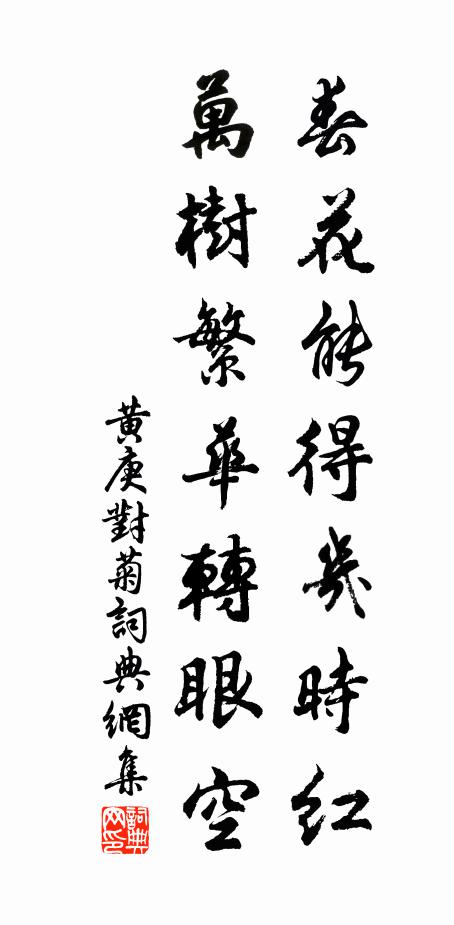 春花能得幾時紅
萬樹繁華轉眼空
黃庚對菊詞典網集
詞典網印